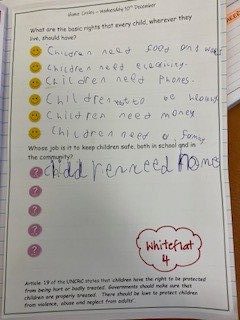 Home Circles – Wednesday 10th December
What are the basic rights that every child, wherever they
live, should have?
Children need food and
Children need
Children need phones.
Children to be
Children need money
Children need a
Whose job is it to keep children safe, both in school and in
the community?
need
Whiteflat
4
Article 19 of the UNCRC states that 'children have the right to be protected
from being hurt or badly treated. Governments should make sure that
children are properly treated. There should be laws to protect children
from violence, abuse and neglect from adults'.